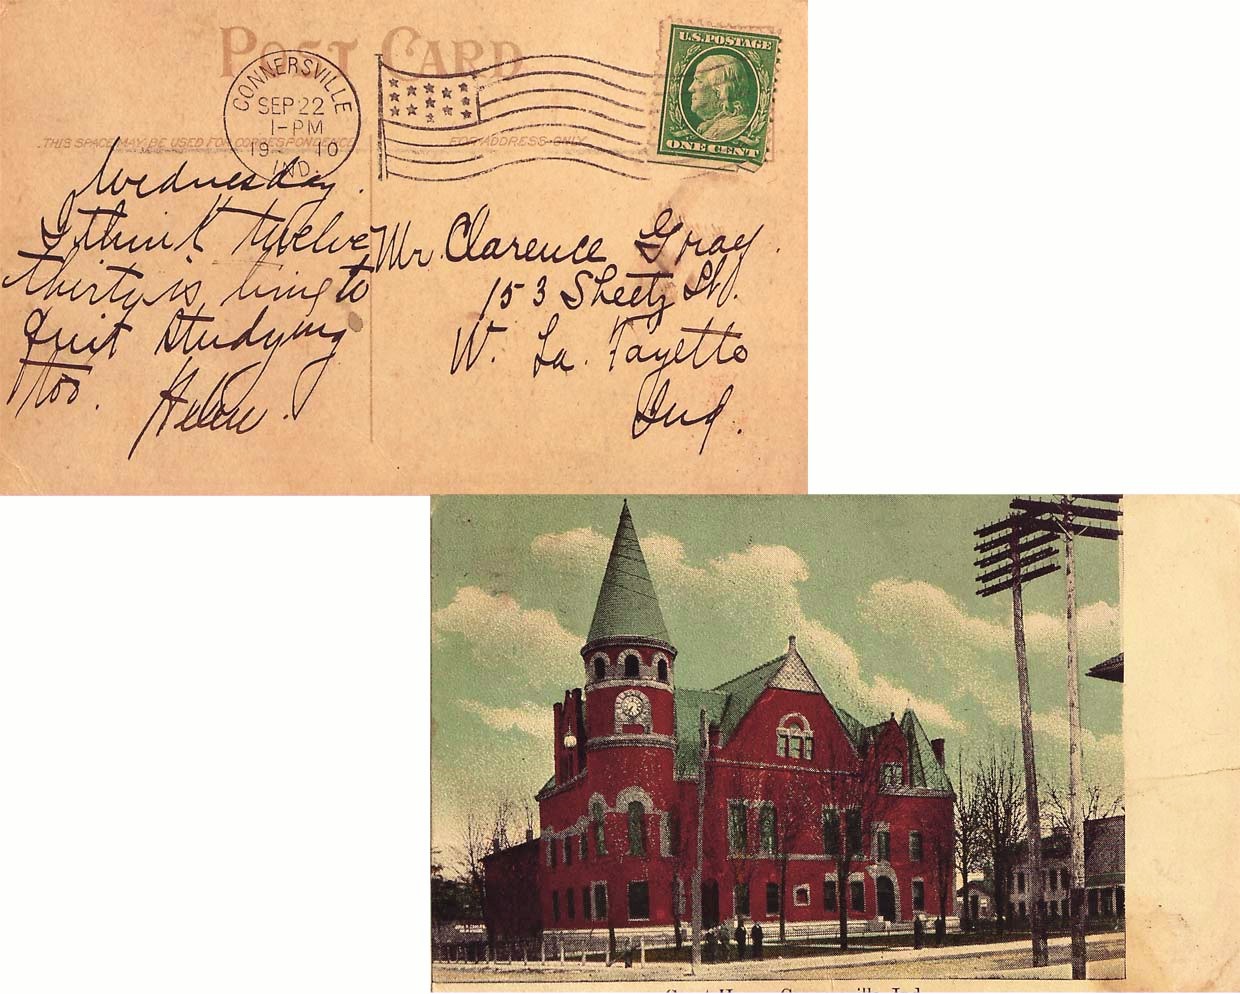 POST CARD
CONNERSVILLE
SEP 22
1-PM
1910
IND.
U.S. POSTAGE
ONE CENT
THIS SPACE MAY BE USED FOR CORRESPONDENCE
FOR ADDRESS ONLY
Wednesday.
I think twelve
thirty is time to
quit studying
too.
Helen.
Mr. Clarence Gray.
153 Sheetz St.
W. La. Fayette
Ind.
Court House, Connersville, Ind.